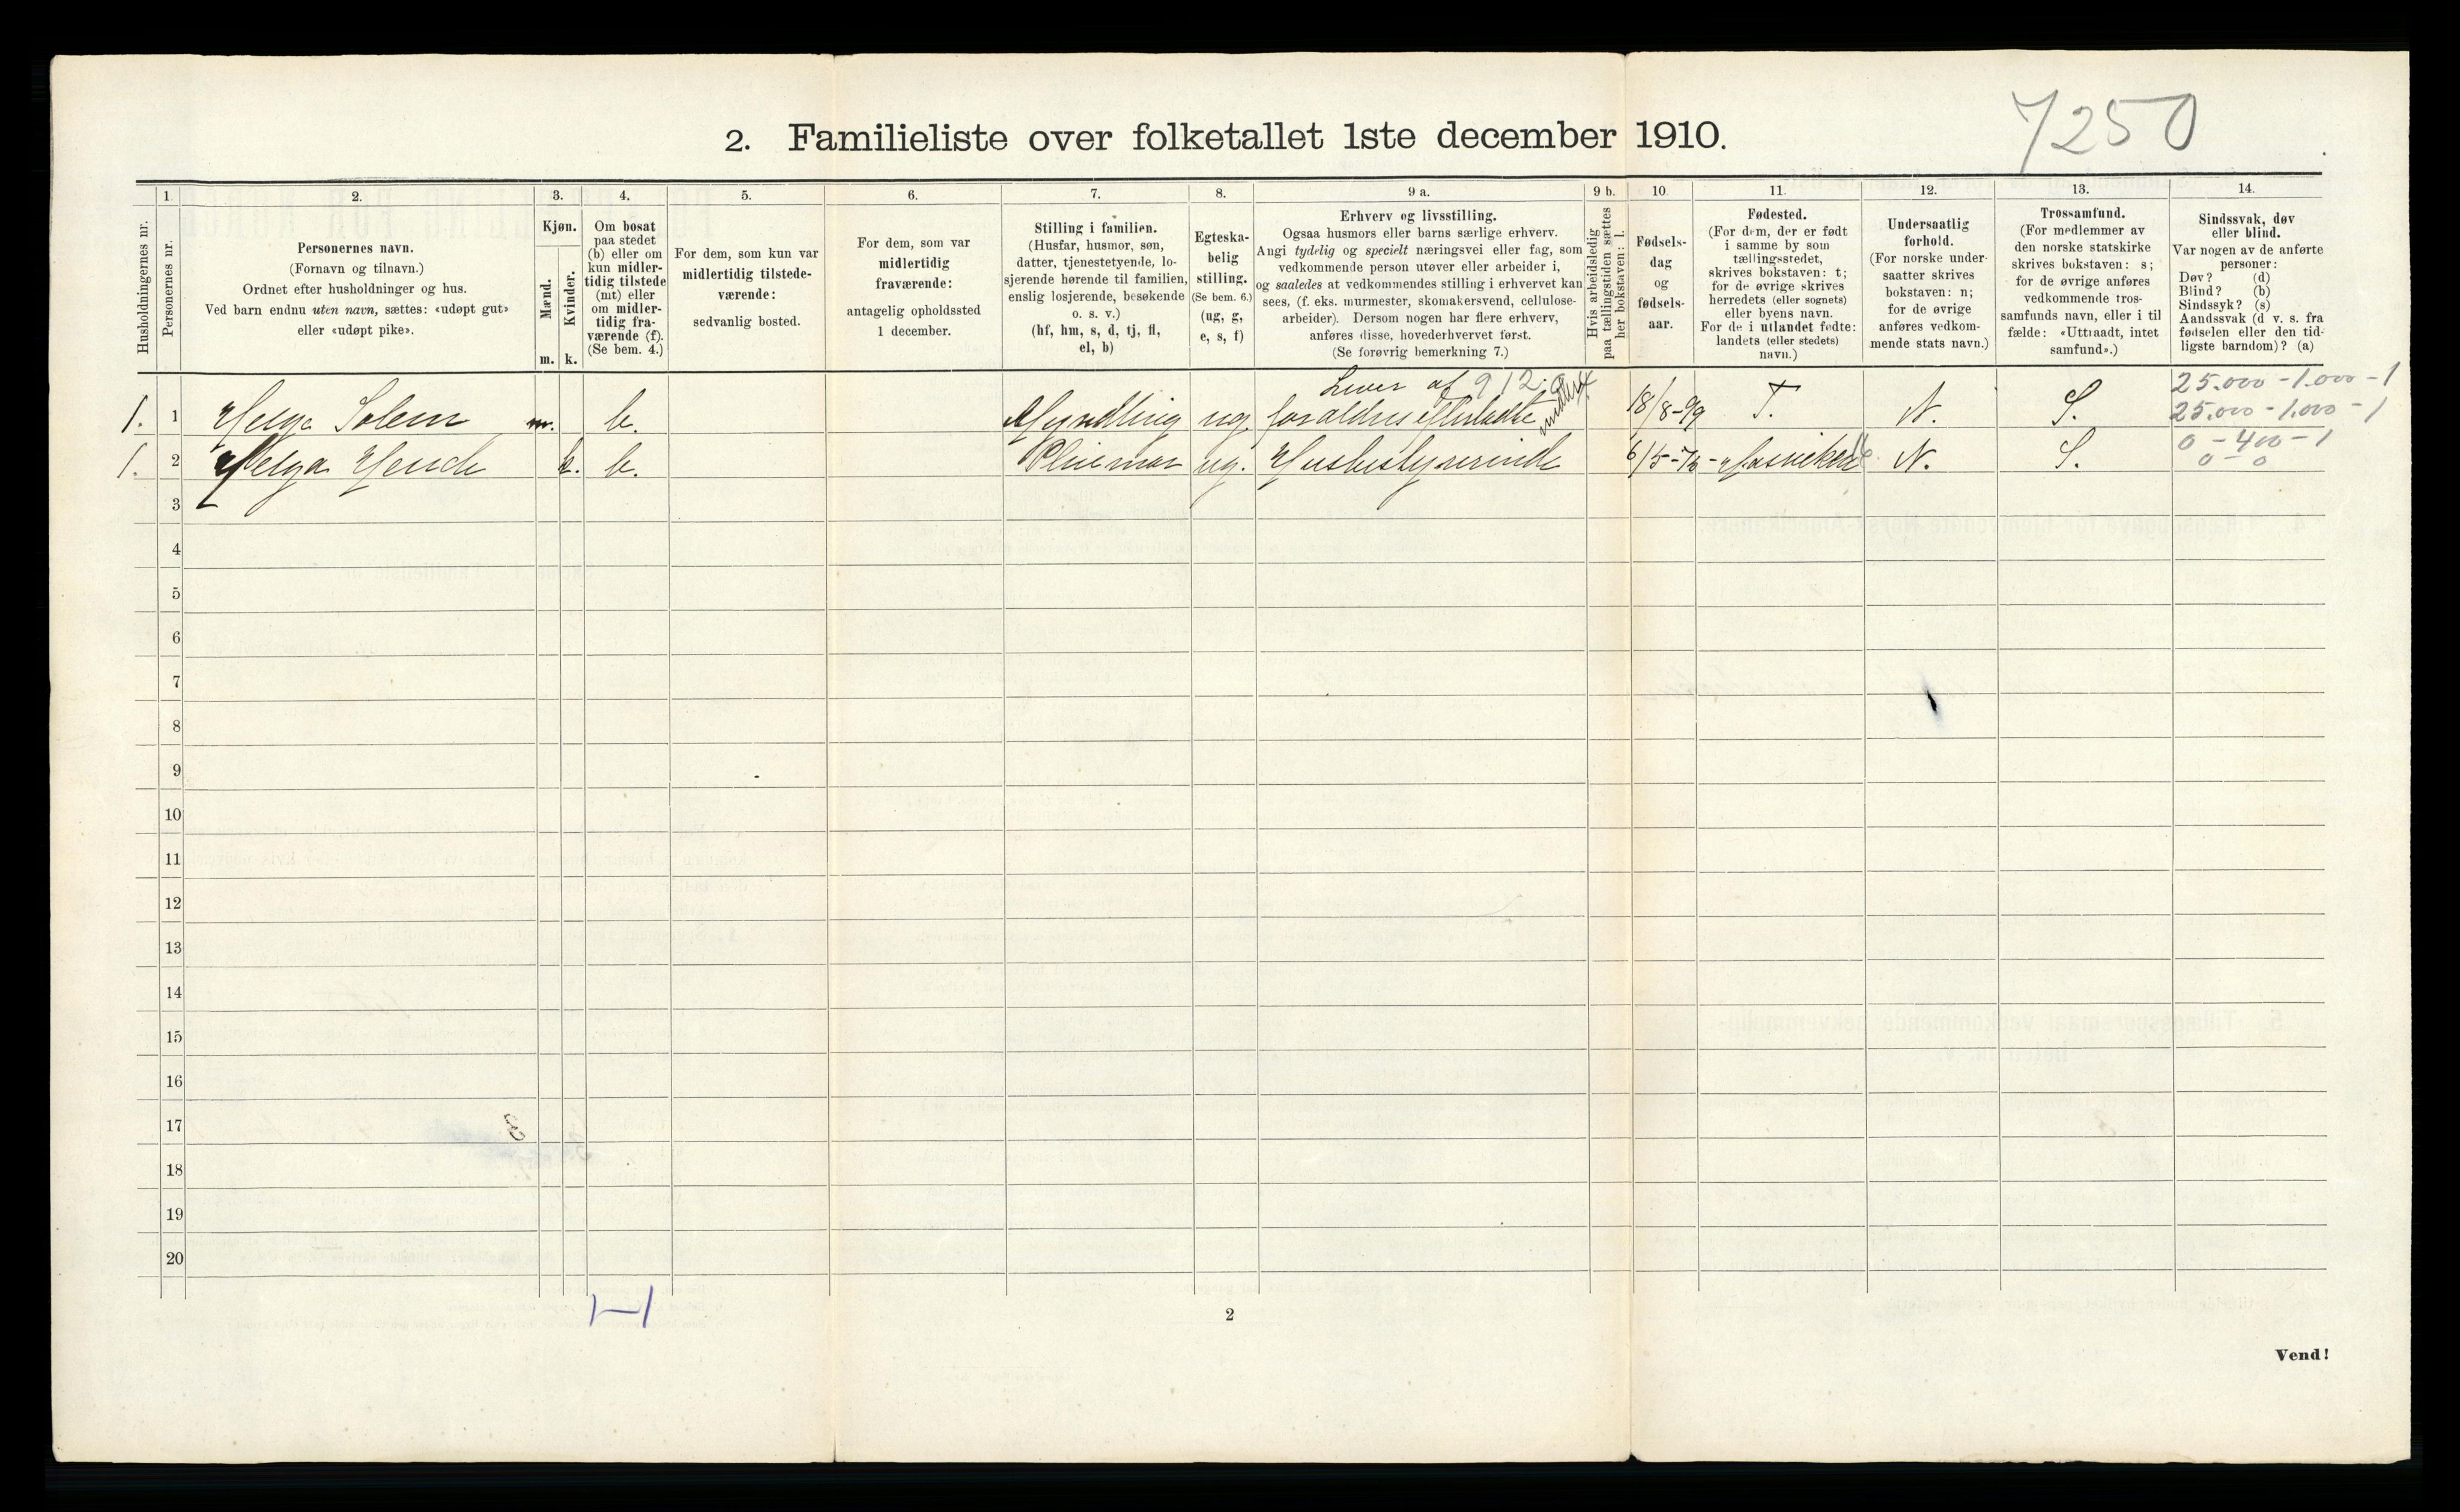 7250
2. Familieliste over folketallet 1ste december 1910.
Husholdningernes nr.
1.
Personernes nr.
2.
Personernes navn.
(Fornavn og tilnavn.)
Ordnet efter husholdninger og hus.
Ved barn endnu uten navn, sættes: «udøpt gut»
eller «udøpt pike».
3.
Kjøn.
Mænd.
Kvinder.
m. k.
4.
Om bosat
paa stedet
(b) eller om
kun midler-
tidig tilstede
(mt) eller
om midler-
tidig fra-
værende (f).
(Se bem. 4.)
5.
For dem, som kun var
midlertidig tilstede-
værende:
sedvanlig bosted.
6.
For dem, som var
midlertidig
fraværende:
antagelig opholdssted
1 december.
7.
Stilling i familien.
(Husfar, husmor, søn,
datter, tjenestetyende, lo-
sjerende hørende til familien,
enslig losjerende, besøkende
o. s. v.)
(hf, hm, s, d, tj, fl,
el, b)
8.
Egteska-
belig
stilling.
(Se bem. 6.)
(ug, g,
e, s, f)
9 a.
Erhverv og livsstilling.
Ogsaa husmors eller barns særlige erhverv.
Angi tydelig og specielt næringsvei eller fag, som
vedkommende person utøver eller arbeider i,
og saaledes at vedkommendes stilling i erhvervet kan
sees, (f. eks. murmester, skomakersvend, cellulose-
arbeider). Dersom nogen har flere erhverv,
anføres disse, hovederhvervet først.
(Se forøvrig bemerkning 7.)
9 b.
Hvis arbeidsledig
paa tællingstiden sættes
her bokstaven: l.
10.
Fødsels-
dag
og
fødsels-
aar.
11.
Fødested.
(For dem, der er født
i samme by som
tællingsstedet,
skrives bokstaven: t;
for de øvrige skrives
herredets (eller sognets)
eller byens navn.
For de i utlandet fødte:
landets (eller stedets)
navn.)
12.
Undersaatlig
forhold.
(For norske under-
saatter skrives
bokstaven: n;
for de øvrige
anføres vedkom-
mende stats navn.)
13.
Trossamfund.
(For medlemmer av
den norske statskirke
skrives bokstaven: s;
for de øvrige anføres
vedkommende tros-
samfunds navn, eller i til
fælde: «Uttraadt, intet
samfund».)
14.
Sindssvak, døv
eller blind.
Var nogen av de anførte
personer:
Døv? (d)
Blind? (b)
Sindssyk? (s)
Aandssvak (d v. s. fra
fødselen eller den tid-
ligste barndom)? (a)
Lever af 912.a 25.000 - 1.000 - 1
1. 1 Helge Solem m. b. Myndling ug. forældres efterladte midler 18/8-99 T. N. S. 25.000 - 1.000 - 1
0 - 400 - 1
1. 2 Helga Hende k. b. Pleiemor ug. Husbestyrerinde N. S. 0 - 0
3
4
5
6
7
8
9
10
11
12
13
14
15
16
17
18
19
20
1-1
2
Vend!